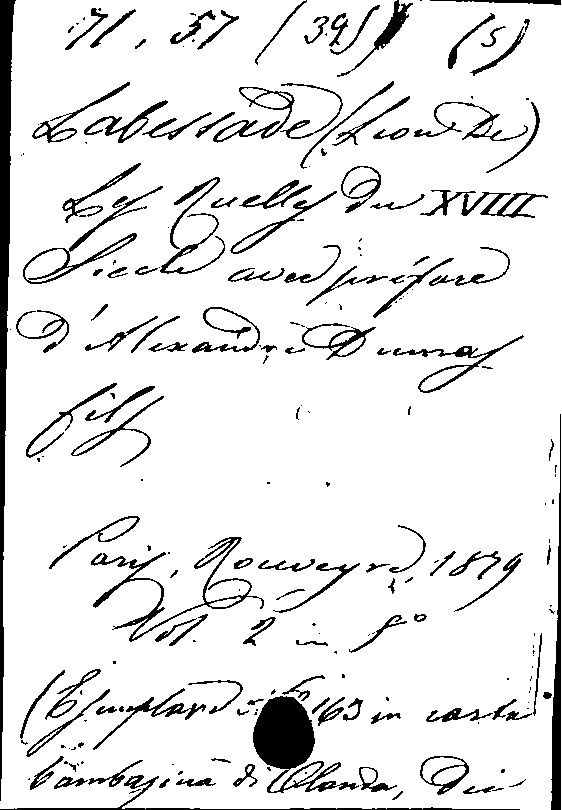 71, 57 (39) (5)
Labessade (Léon De)
Les Ruelles du XVIII
Siecle avec préface
d'Alexandre Dumas
fils
Paris, Rouveyre, 1879
Vol. 2 in 8°
(Esemplare 163 in carta
bambagina di Olanda, Die